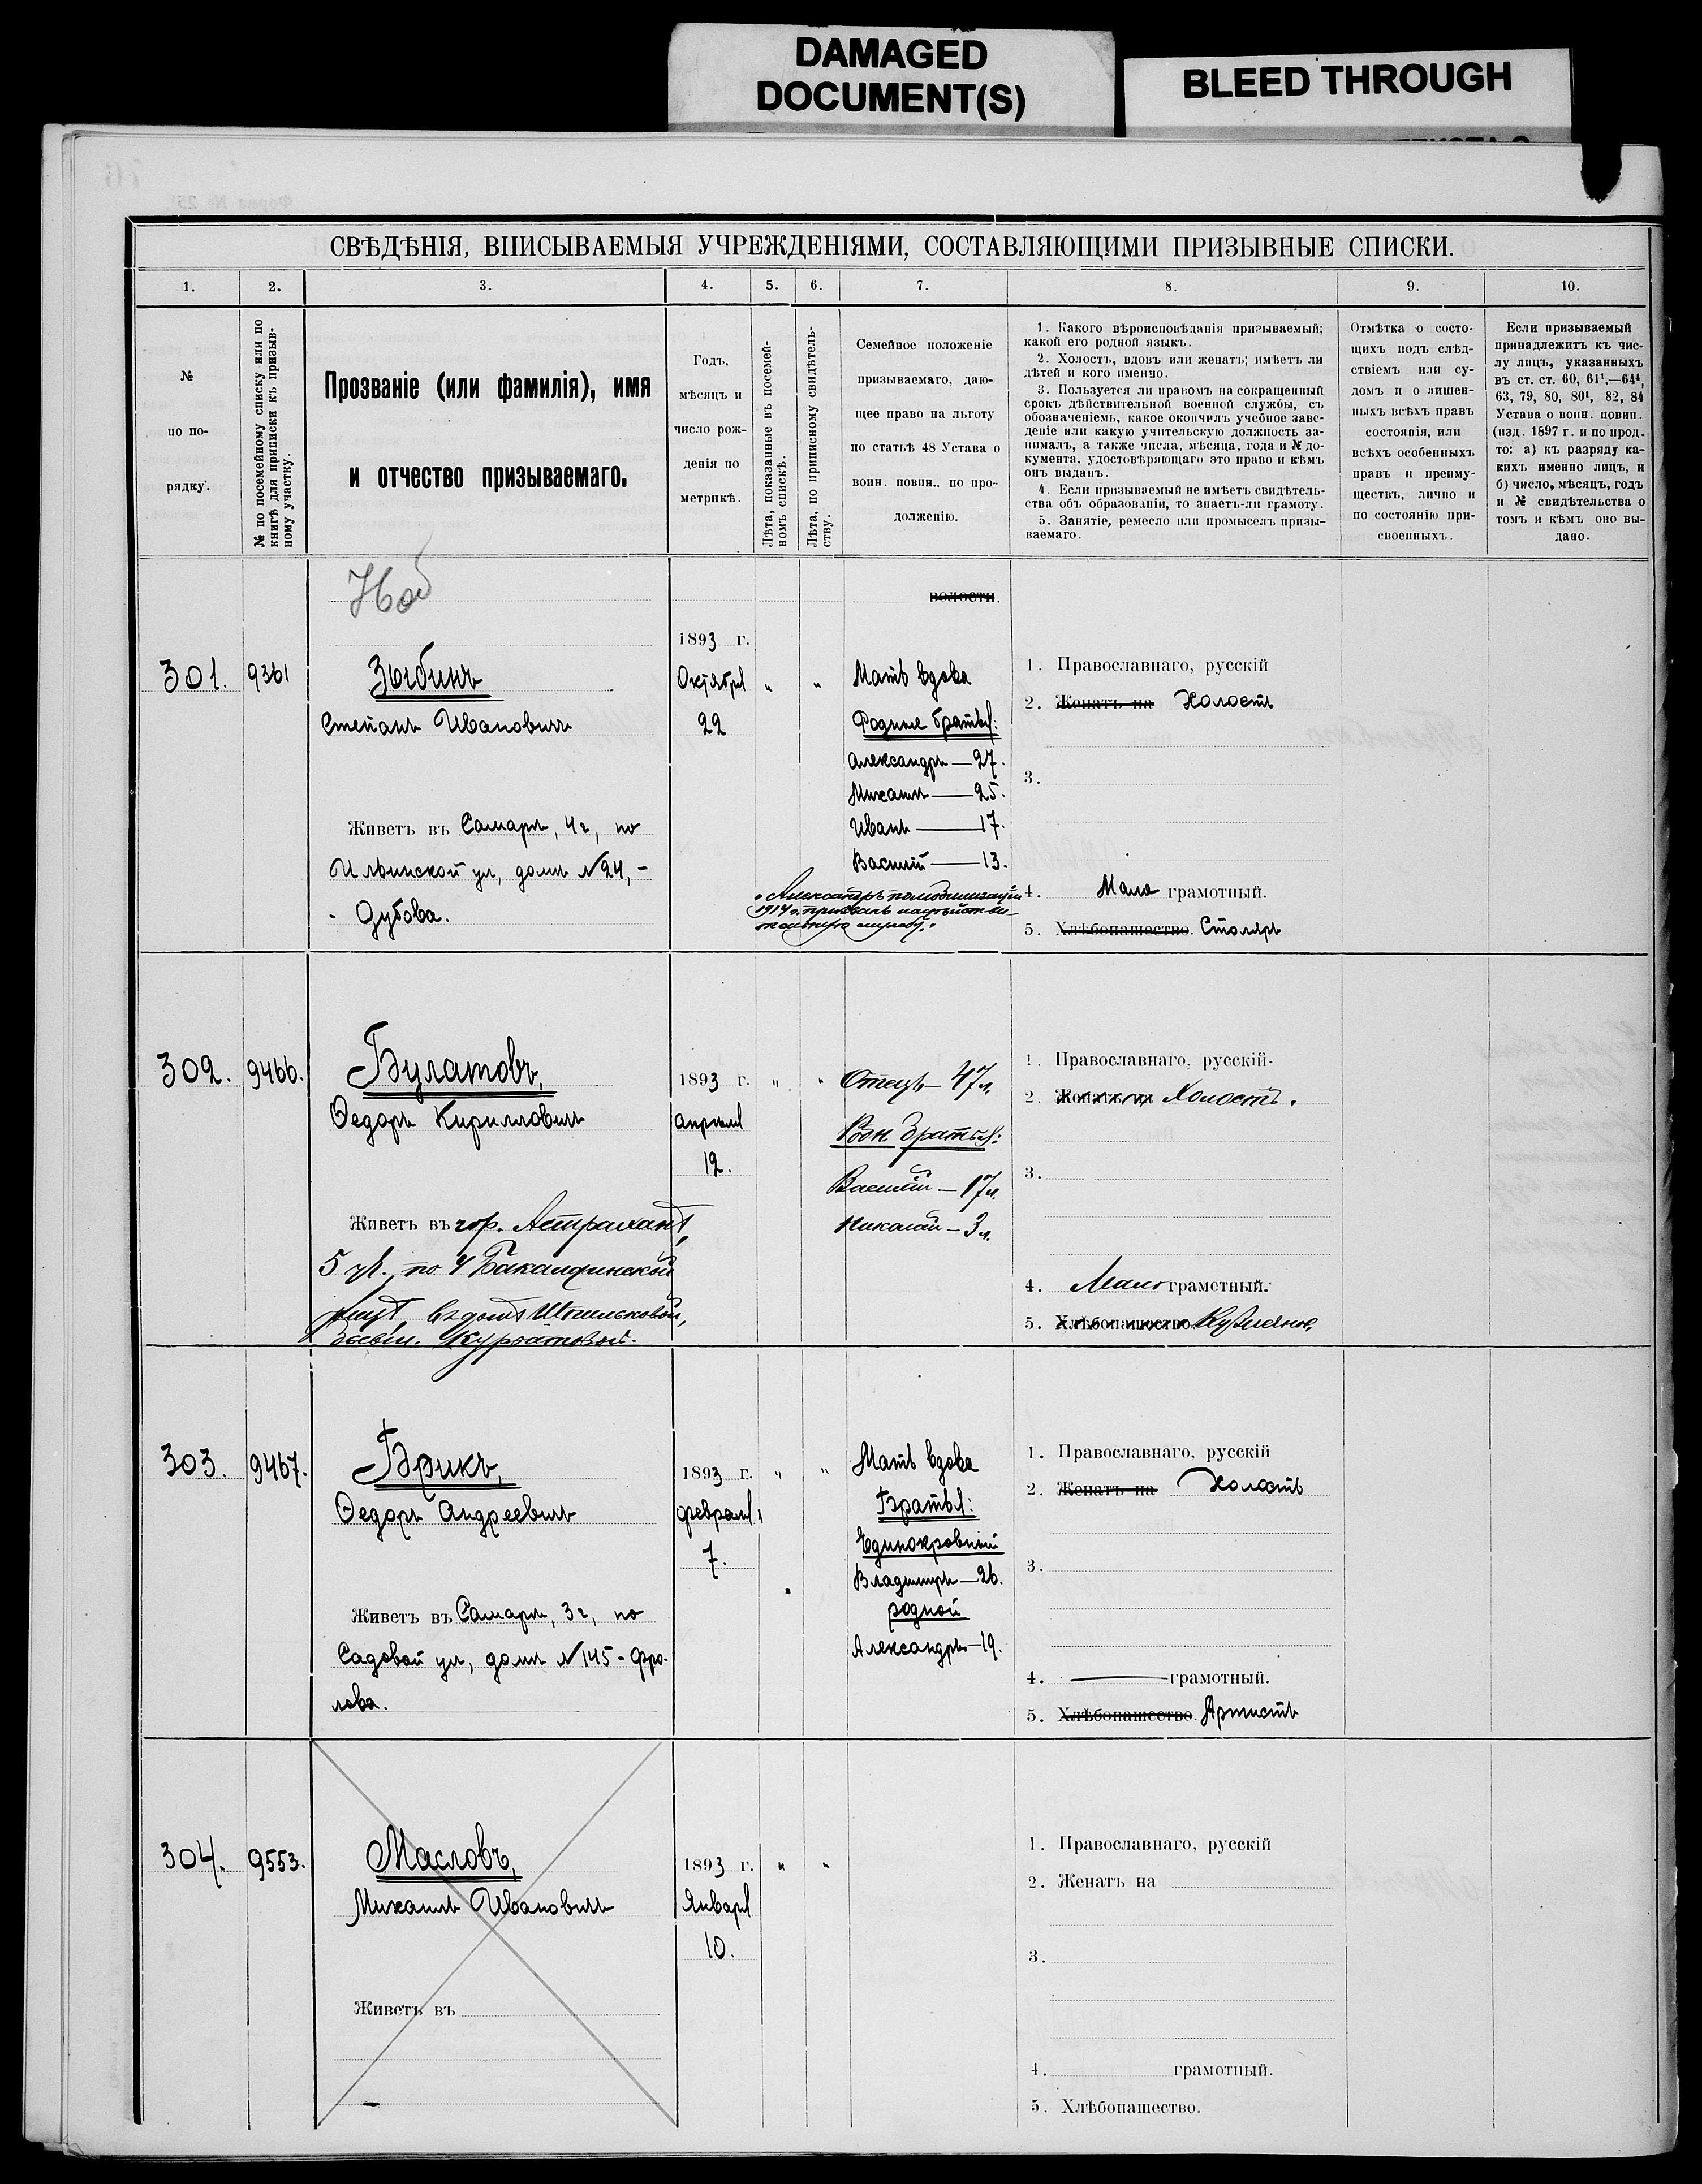 DAMAGED
DOCUMENT(S)
BLEED THROUGH
СВѢДѢНІЯ, ВПИСЫВАЕМЫЯ УЧРЕЖДЕНІЯМИ, СОСТАВЛЯЮЩИМИ ПРИЗЫВНЫЕ СПИСКИ.
1. 2. 3. 4. 5. 6. 7. 8. 9. 10.
№
по по-
рядку.
№ по посемейному списку или по
книгѣ для приписки къ призыв-
ному участку.
Прозваніе (или фамилія), имя
и отчество призываемаго.
Годъ,
мѣсяцъ и
число рож-
денія по
метрикѣ.
Лѣта, показанные въ посемей-
номъ спискѣ.
Лѣта, по приписному свидѣтель-
ству.
Семейное положеніе
призываемаго, даю-
щее право на льготу
по статьѣ 48 Устава о
воин. повин., по про-
долженію.
1. Какого вѣроисповѣданія призываемый;
какой его родной языкъ.
2. Холостъ, вдовъ или женатъ; имѣетъ ли
дѣтей и кого именно.
3. Пользуется ли правомъ на сокращенный
срокъ дѣйствительной военной службы, съ
обозначеніемъ, какое окончилъ учебное заве-
деніе или какую учительскую должность за-
нималъ, а также числа, мѣсяца, года и № до-
кумента, удостовѣряющаго это право и кѣмъ
онъ выданъ.
4. Если призываемый не имѣетъ свидѣтель-
ства объ образованіи, то знаетъ-ли грамоту.
5. Занятіе, ремесло или промыселъ призы-
ваемаго.
Отмѣтка о состо-
щихъ подъ слѣд-
ствіемъ или су-
домъ и о лишен-
ныхъ всѣхъ правъ
состоянія, или
всѣхъ особенныхъ
правъ и преиму-
ществъ, лично и
по состоянію при-
своенныхъ.
Если призываемый
принадлежитъ къ чис-
лу лицъ, указанныхъ
въ ст. ст. 60, 61¹,—64⁴,
63, 79, 80, 80¹, 82, 84
Устава о воин. повин.
(изд. 1897 г. и по прод.
то: а) къ разряду ка-
кихъ именно лицъ, и
б) число, мѣсяцъ, годъ
и № свидѣтельства о
томъ и кѣмъ оно вы-
дано.
волости.
301. 9361
Зыбинъ
Степанъ Ивановичъ
Живетъ въ Самарѣ, 4 г, по
Ильинской ул, домъ № 24, -
- Дубова.
1893 г.
Октября
22
" "
Мать вдова
Родные братья:
Александръ — 27.
Михаилъ — 25.
Иванъ — 17.
Василій — 13.
„Александръ по мобилизаціи
1914 г. призванъ на дѣйстви-
тельную службу."
1. Православнаго, русскій
2. Женатъ на Холостъ
3.
4. Мало грамотный.
5. Хлѣбопашество. Столяръ
302. 9466.
Булатовъ,
Ѳедоръ Кирилловичъ
Живетъ въ гор. Астрахани,
5 уч., по 4 Бакалдинской
1893 г.
Апрѣля
12.
" "
Отецъ — 47 л.
Родн. братья:
Василій — 17 л.
Николай — 3 л.
1. Православнаго, русскій-
2. Женатъ на Холостъ.
3.
4. Мало грамотный.
5. Хлѣбопашество
303. 9467.
Брикъ,
Ѳедоръ Андреевичъ
Живетъ въ Самарѣ, 3 г, по
Садовой ул, домъ № 145 - Фро-
лова.
1893 г.
Февраля
7.
" "
Мать вдова
Братья:
Единокровный
Владиміръ — 26.
родной
Александръ — 19.
1. Православнаго, русскій
2. Женатъ на Холостъ
3.
4. грамотный.
5. Хлѣбопашество. Артистъ
304. 9553.
Масловъ,
Михаилъ Ивановичъ
Живетъ въ
1893 г.
Января
10.
" "
1. Православнаго, русскій
2. Женатъ на
3.
4. грамотный.
5. Хлѣбопашество.